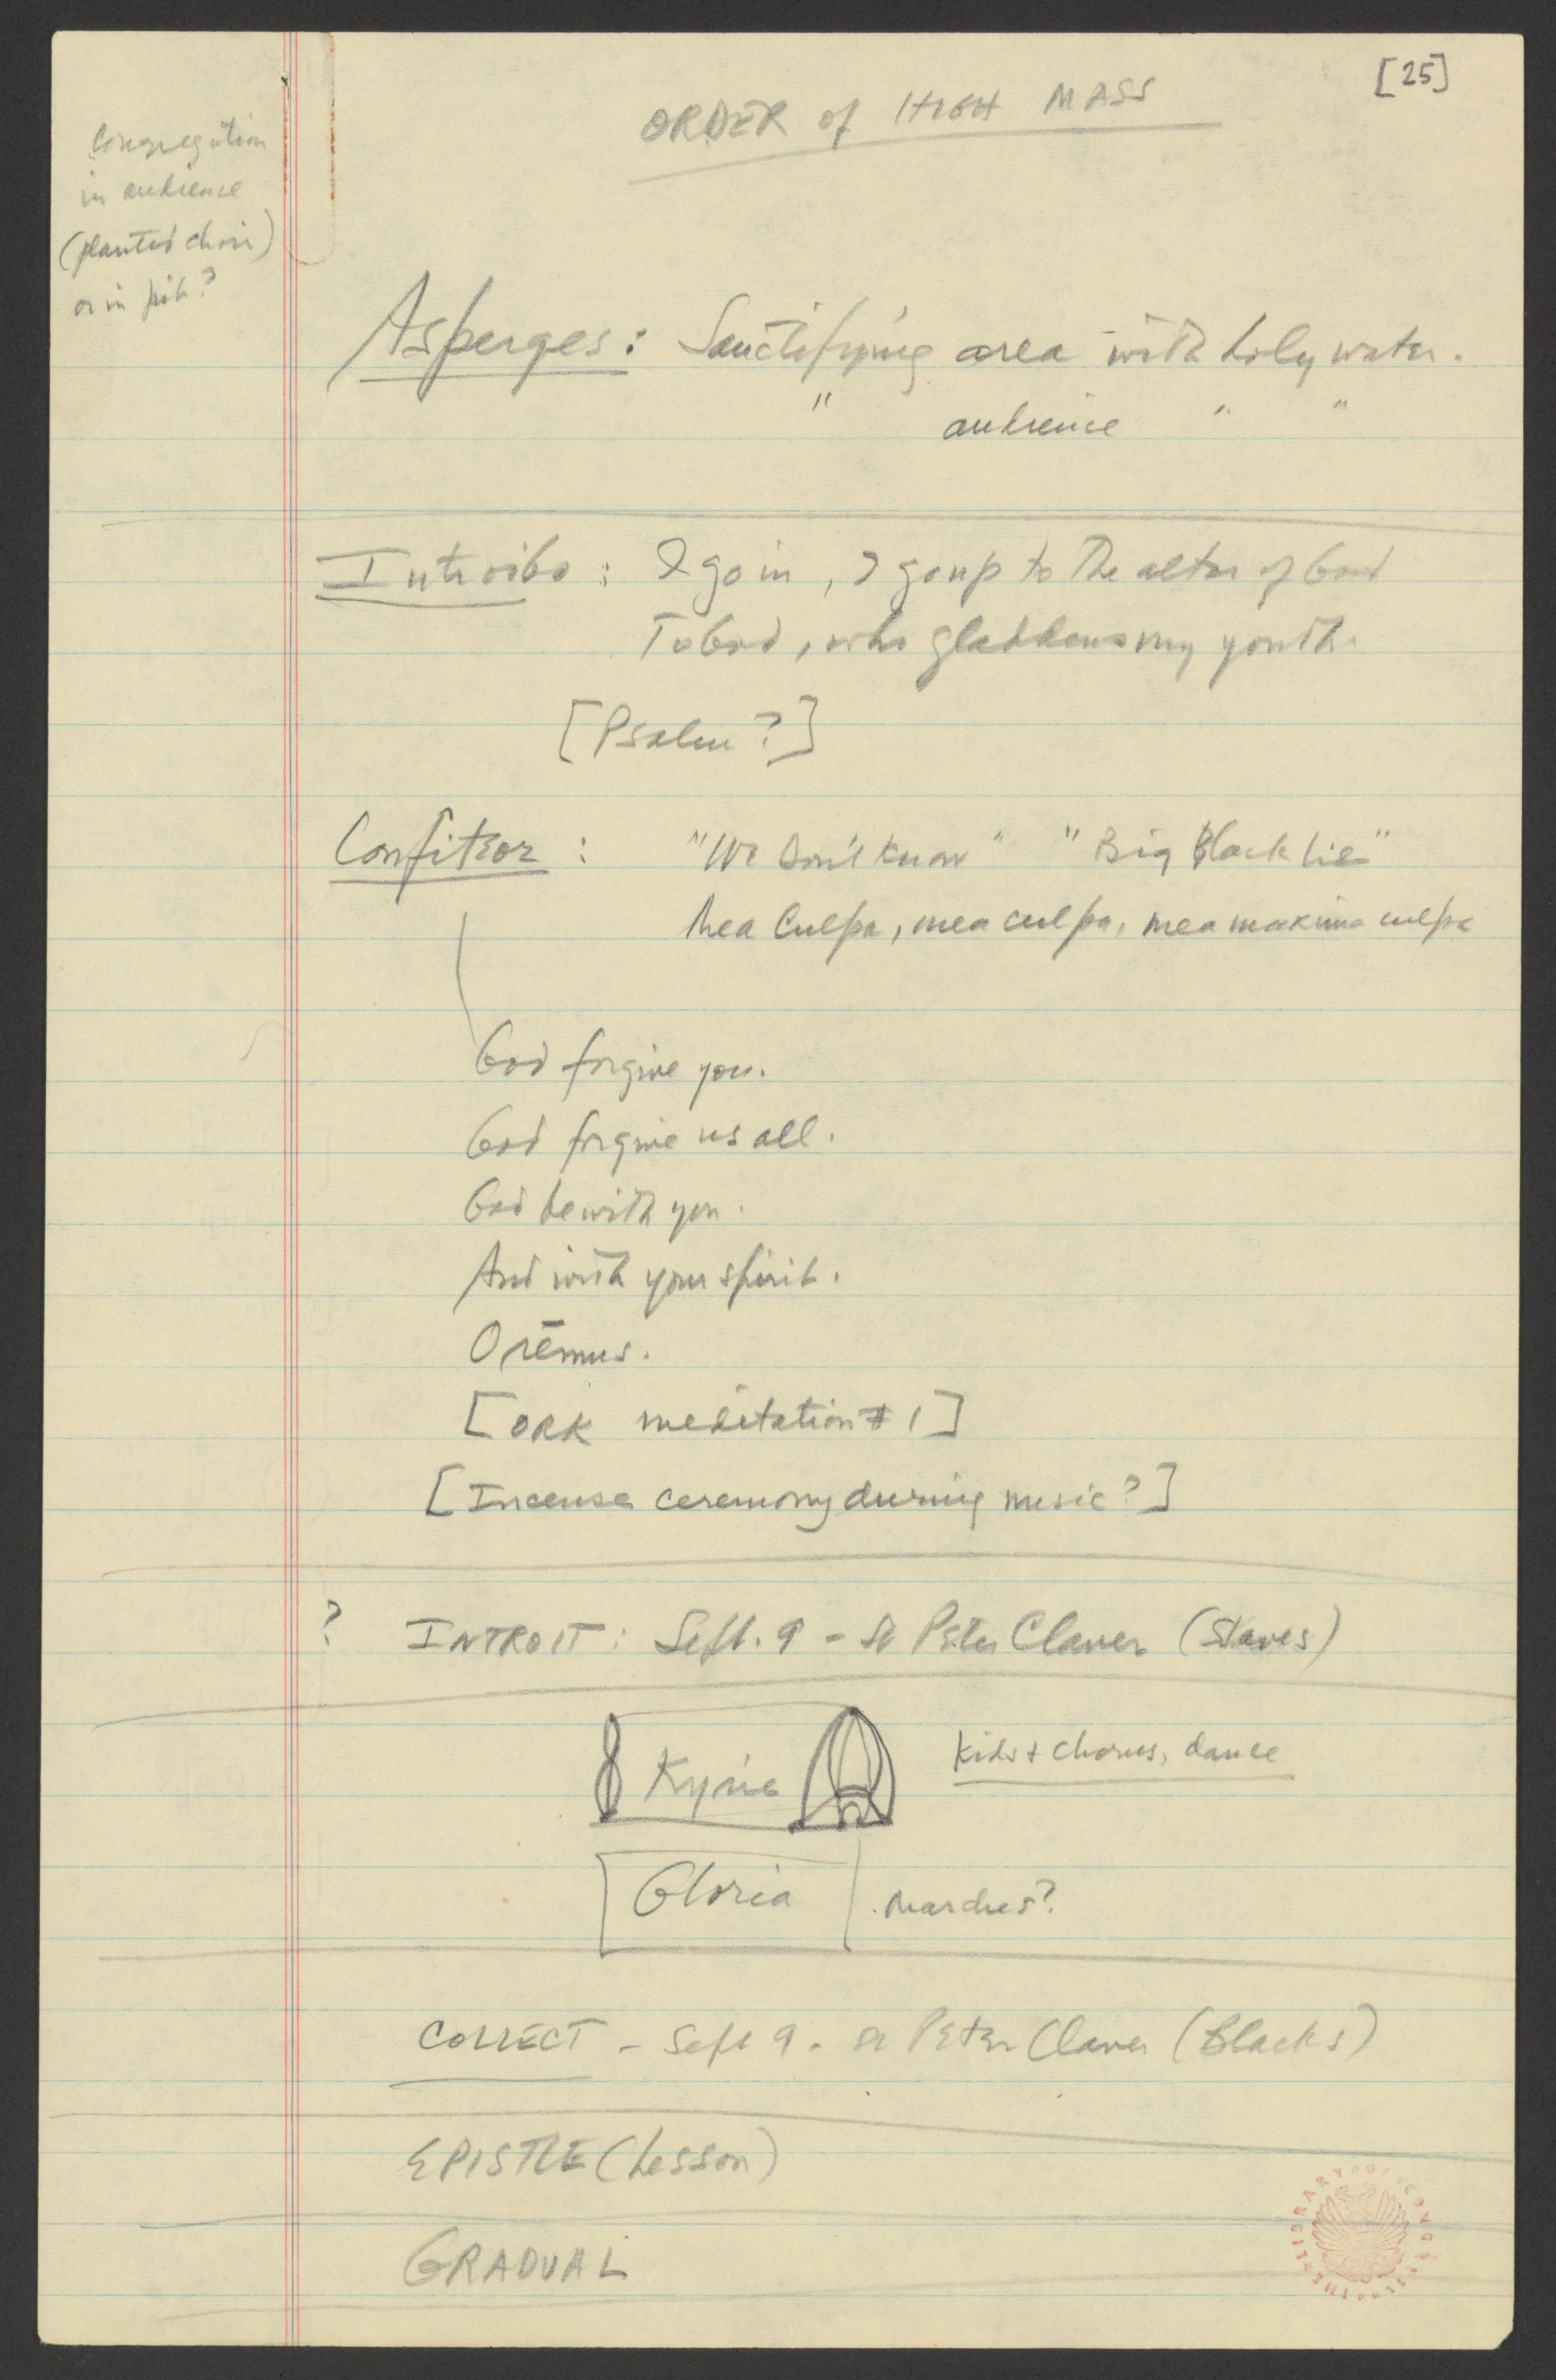 [25]
ORDER of HIGH MASS
Congregation
in audience
(planted choir)
or in pit?
Asperges: Sanctifying area with holy water.
" audience " "
Introibo: I go in, I go up to the altar of God
To God, who gladdens my youth.
[Psalm?]
Confiteor: "We Don't Know" "Big Black Lie"
Mea Culpa, mea culpa, mea maxima culpa
God forgive you.
God forgive us all.
God be with you.
And with your spirit.
Orēmus.
[ORK meditation #1]
[Incense ceremony during music?]
? INTROIT: Sept. 9 - St Peter Claver (Slaves)
Kyrie Kids + chorus, dance
Gloria Marches?
COLLECT - Sept 9. St Peter Claver (Blacks)
EPISTLE (Lesson)
GRADUAL
THE LIBRARY OF CONGRESS